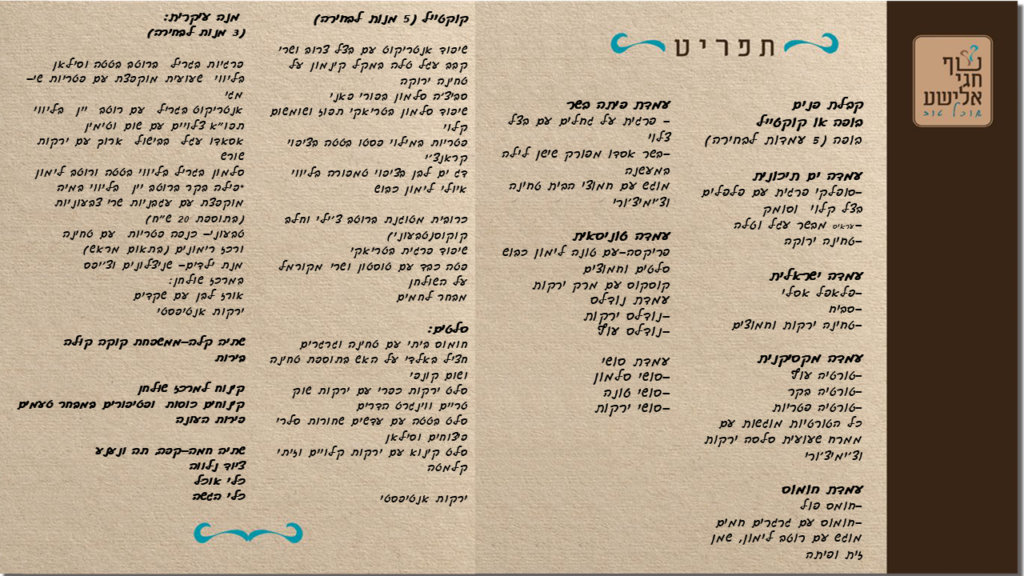 נוף
חגי
אלישע
אוכל טוב
תפריט
קבלת פנים
בופה או קוקטייל
בופה (5 עמדות לבחירה)
עמדה ים תיכונית
-סופלקי פרגית עם פלפלים
בצל קלוי וסומק
-עראיס מבשר עגל וטלה
-טחינה ירוקה
עמדה ישראלית
-פלאפל אסלי
-סביח
-טחינה ירקות וחמוצים
עמדה מקסיקנית
-טורטיה עוף
-טורטיה בקר
-טורטיה פטריות
כל הטורטיות מוגשות עם
ממרח שעועית סלסה ירקות
וצ'ימיצ'ורי
עמדת חומוס
-חומס פול
-חומוס עם גרגרים חמים
מוגש עם רוטב לימון, שמן
זית ופיתה
עמדת פיתה בשר
- פרגית על גחלים עם בצל
צלוי
-בשר אסדו מפורק שישן לילה
במעשנה
מוגש עם חמוצי הבית טחינה
וצ'ימיצ'ורי
עמדה טוניסאית
פריקסה-עם טונה לימון כבוש
סלטים וחמוצים
קוסקוס עם מרק ירקות
עמדת נודלס
-נודלס ירקות
-נודלס עוף
עמדת סושי
-סושי סלמון
-סושי טונה
-סושי ירקות
קוקטייל (5 מנות לבחירה)
שיפוד אנטריקוט עם בצל צרוב ושרי
קבב עגל טלה במקל קינמון על
טחינה ירוקה
סביצ'ה סלמון בפורי פאני
שיפוד סלמון בטריאקי תפוז ושומשום
קלוי
פטריות במילוי פסטו בטטה בציפוי
קראנצ'י
דג ים לבן בציפוי טמפורה בליווי
איולי לימון כבוש
כרובית מטוגנת ברוטב צ'ילי וחלב
קוקוס(טבעוני)
שיפוד פרגית בטריאקי
פטה כבד עם טוסטון ושרי מקורמל
על השולחן
מבחר לחמים
סלטים:
חומוס ביתי עם טחינה וגרגרים
חציל באלדי על האש בתוספת טחינה
ושום קונפי
סלט ירקות כפרי עם ירקות שוק
טריים ווינגרט הדרים
סלט בטטה עם עדשים שחורות סלרי
פיצוחים וסילאן
סלט קינוא עם ירקות קלויים וזיתי
קלמטה
ירקות אנטיפסטי
מנה עיקרית:
(3 מנות לבחירה)
פרגיות בגריל ברוטב בטטה וסילאן
בליווי שעועית מוקפצת עם פטריות שי-
מגי
אנטריקוט בגריל עם רוטב יין בליווי
תפו"א צלויים עם שום וטימין
אסאדו עגל בבישול ארוך עם ירקות
שורש
סלמון בגריל בליווי בטטה ורוטב לימון
*פילה בקר ברוטב יין בליווי במיה
מוקפצת עם עגבניות שרי צבעוניות
(בתוספת 20 ש"ח)
טבעוני- כנפה פטריות עם טחינה
ורכז רימונים (בתאום מראש)
מנת ילדים- שניצלונים וצ'יפס
במרכז שולחן:
אורז לבן עם שקדים
ירקות אנטיפסטי
שתיה קלה-ממשפחת קוקה קולה
בירות
קינוח למרכז שולחן
קינוחים כוסות ופטיפורים במבחר טעמים
פירות העונה
שתיה חמה-קפה, תה ונענע
ציוד נלווה
כלי אוכל
כלי הגשה